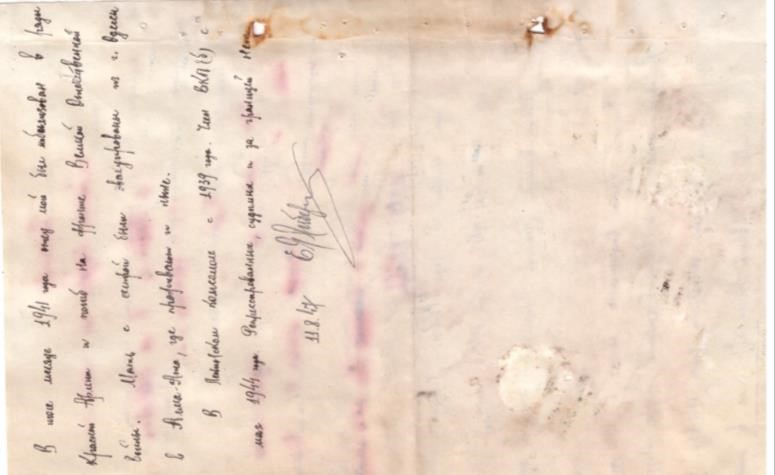 В июле месяце 1941 года отец мой был мобилизован в ряды
Красной Армии и погиб на фронте Великой Отечественной
Войны. Мать с сестрой были эвакуированы из г.
в Алма-Ата, где проживают и ныне.
В Ленинском комсомоле с 1939 года. Член ВКП(б) с
мая 1944 года. Репрессированных, судимых и за границей нет.
11.8.47